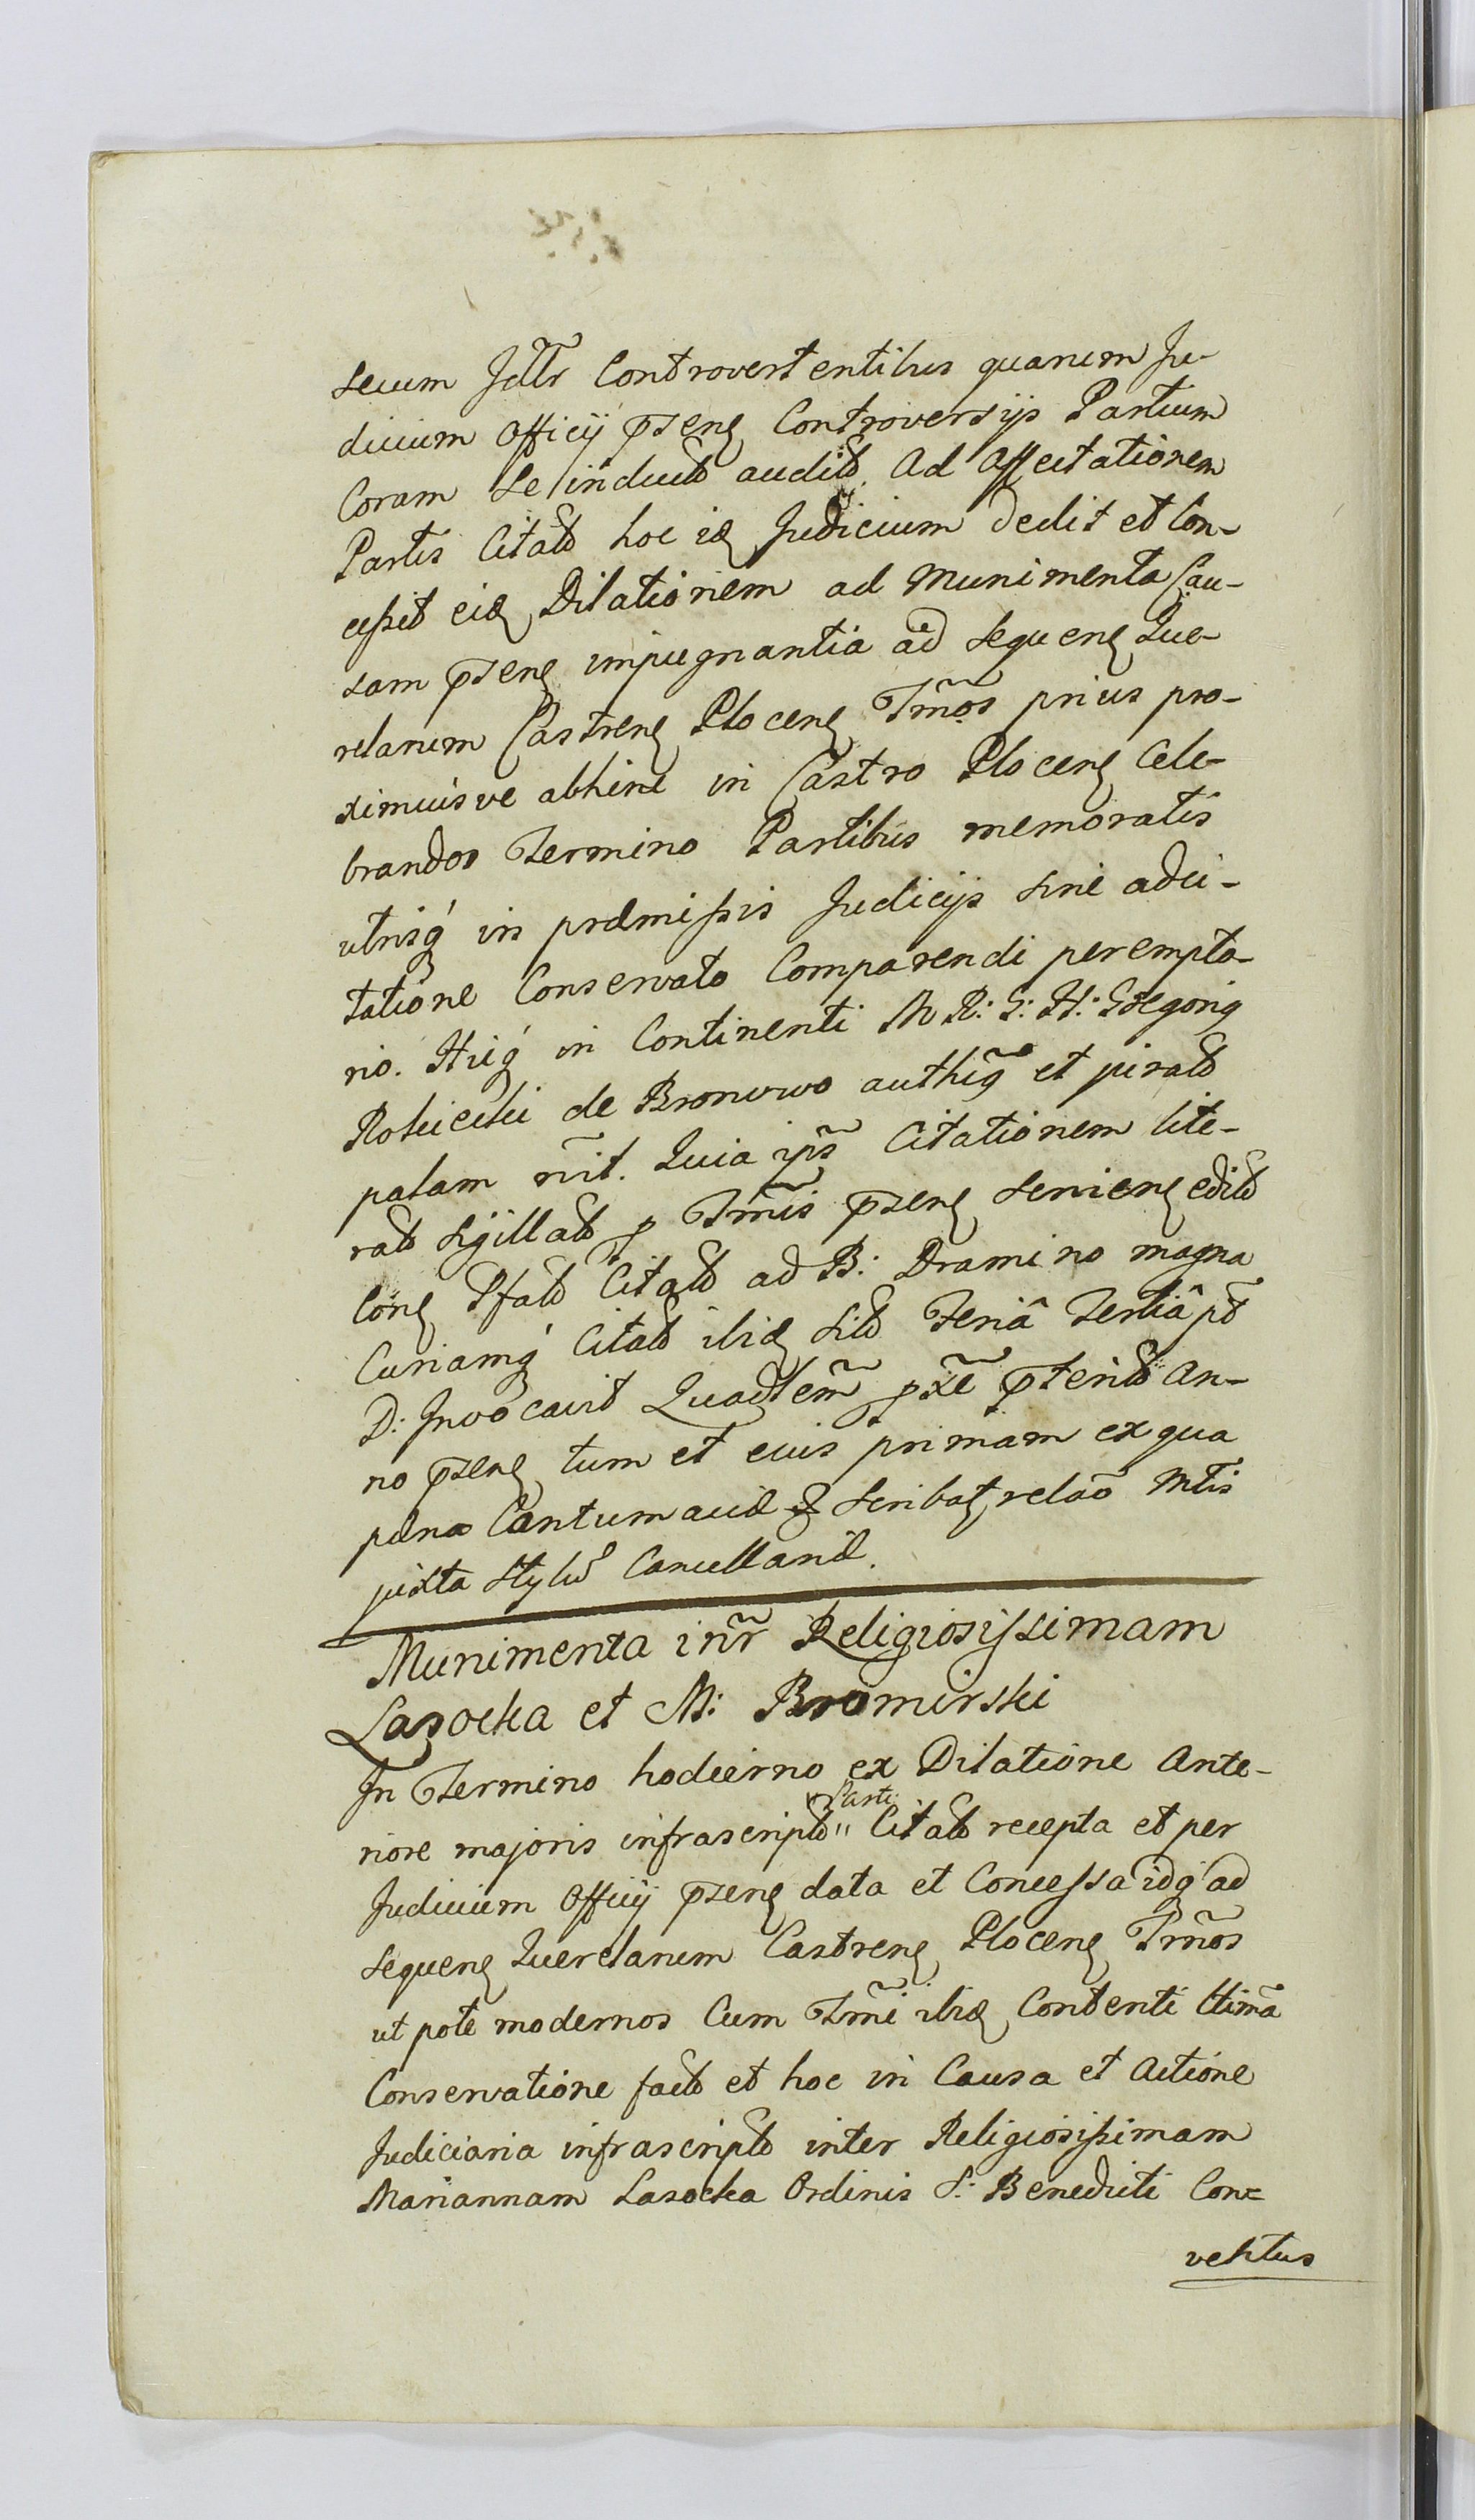 secum Jdtr Controvertentibus quarum Ju-
dicium Officij pñseng Controversijs Partium
Coram se induct audit. Ad Affectationem
Partis Citat hoc id Judicium dedit et Con-
cessit eid Dilationem ad Munimenta Cau-
sam pñseng impugnantia ad sequeng Que-
relarum Castreng Ploceng Trm̃os prius pro-
ximius ve abhinc in Castro Ploceng Cele-
brandos Termino Partibus memoratis
utrisq́ in præmissis Judicijs sine adci-
tatione Conservato Comparendi perempto-
rio. Huiq́ in Continenti M R: G: H: Gregorig
Rokicki de Bronowo authẽg et jurat
palam r̃nit. Quia ips̃ Citationem lite-
rat sigillat p Trm̃is pñseng servieng edit
Cong Pfat Citat ad B: Dramino magna
Curiamq́ Citat ibid sit Feriâ Tertiâ pt
D: Invocavit Quadẽm pxẽ pterit An-
no pñseng tum et eius primam ex qua
pæna Contumaciæ scribat relaõ Mtis
juxta stylũ Cancellariæ.
Munimenta inr̃ Religiosissimam
Lasocka et M: Bromirski
In Termino hodierno ex Dilatione Ante-
riore majoris infrascript " Parte Citat recepta et per
Judicium Officij pñseng data et Concessa idq́ ad
sequeng Querelarum Castreng Ploceng Trm̃os
ut pote modernos Cum Trm̃i ibid Contenti ltimã
Conservatione fact et hoc in Causa et Actione
Judiciaria infrascript inter Religiosissimam
Mariannam Lasocka Ordinis S: Benedicti Con=
ventus